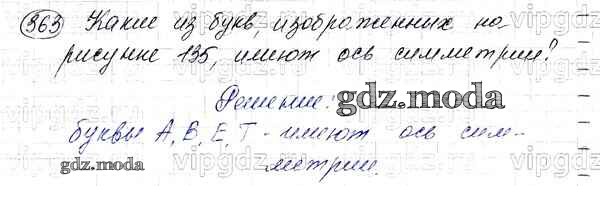 363 Какие из букв, изображенных на
рисунке 135, имеют ось симметрии?
Решение:
gdz.moda
буквы А, В, Е, Т - имеют ось сим-
метрии.
gdz.moda